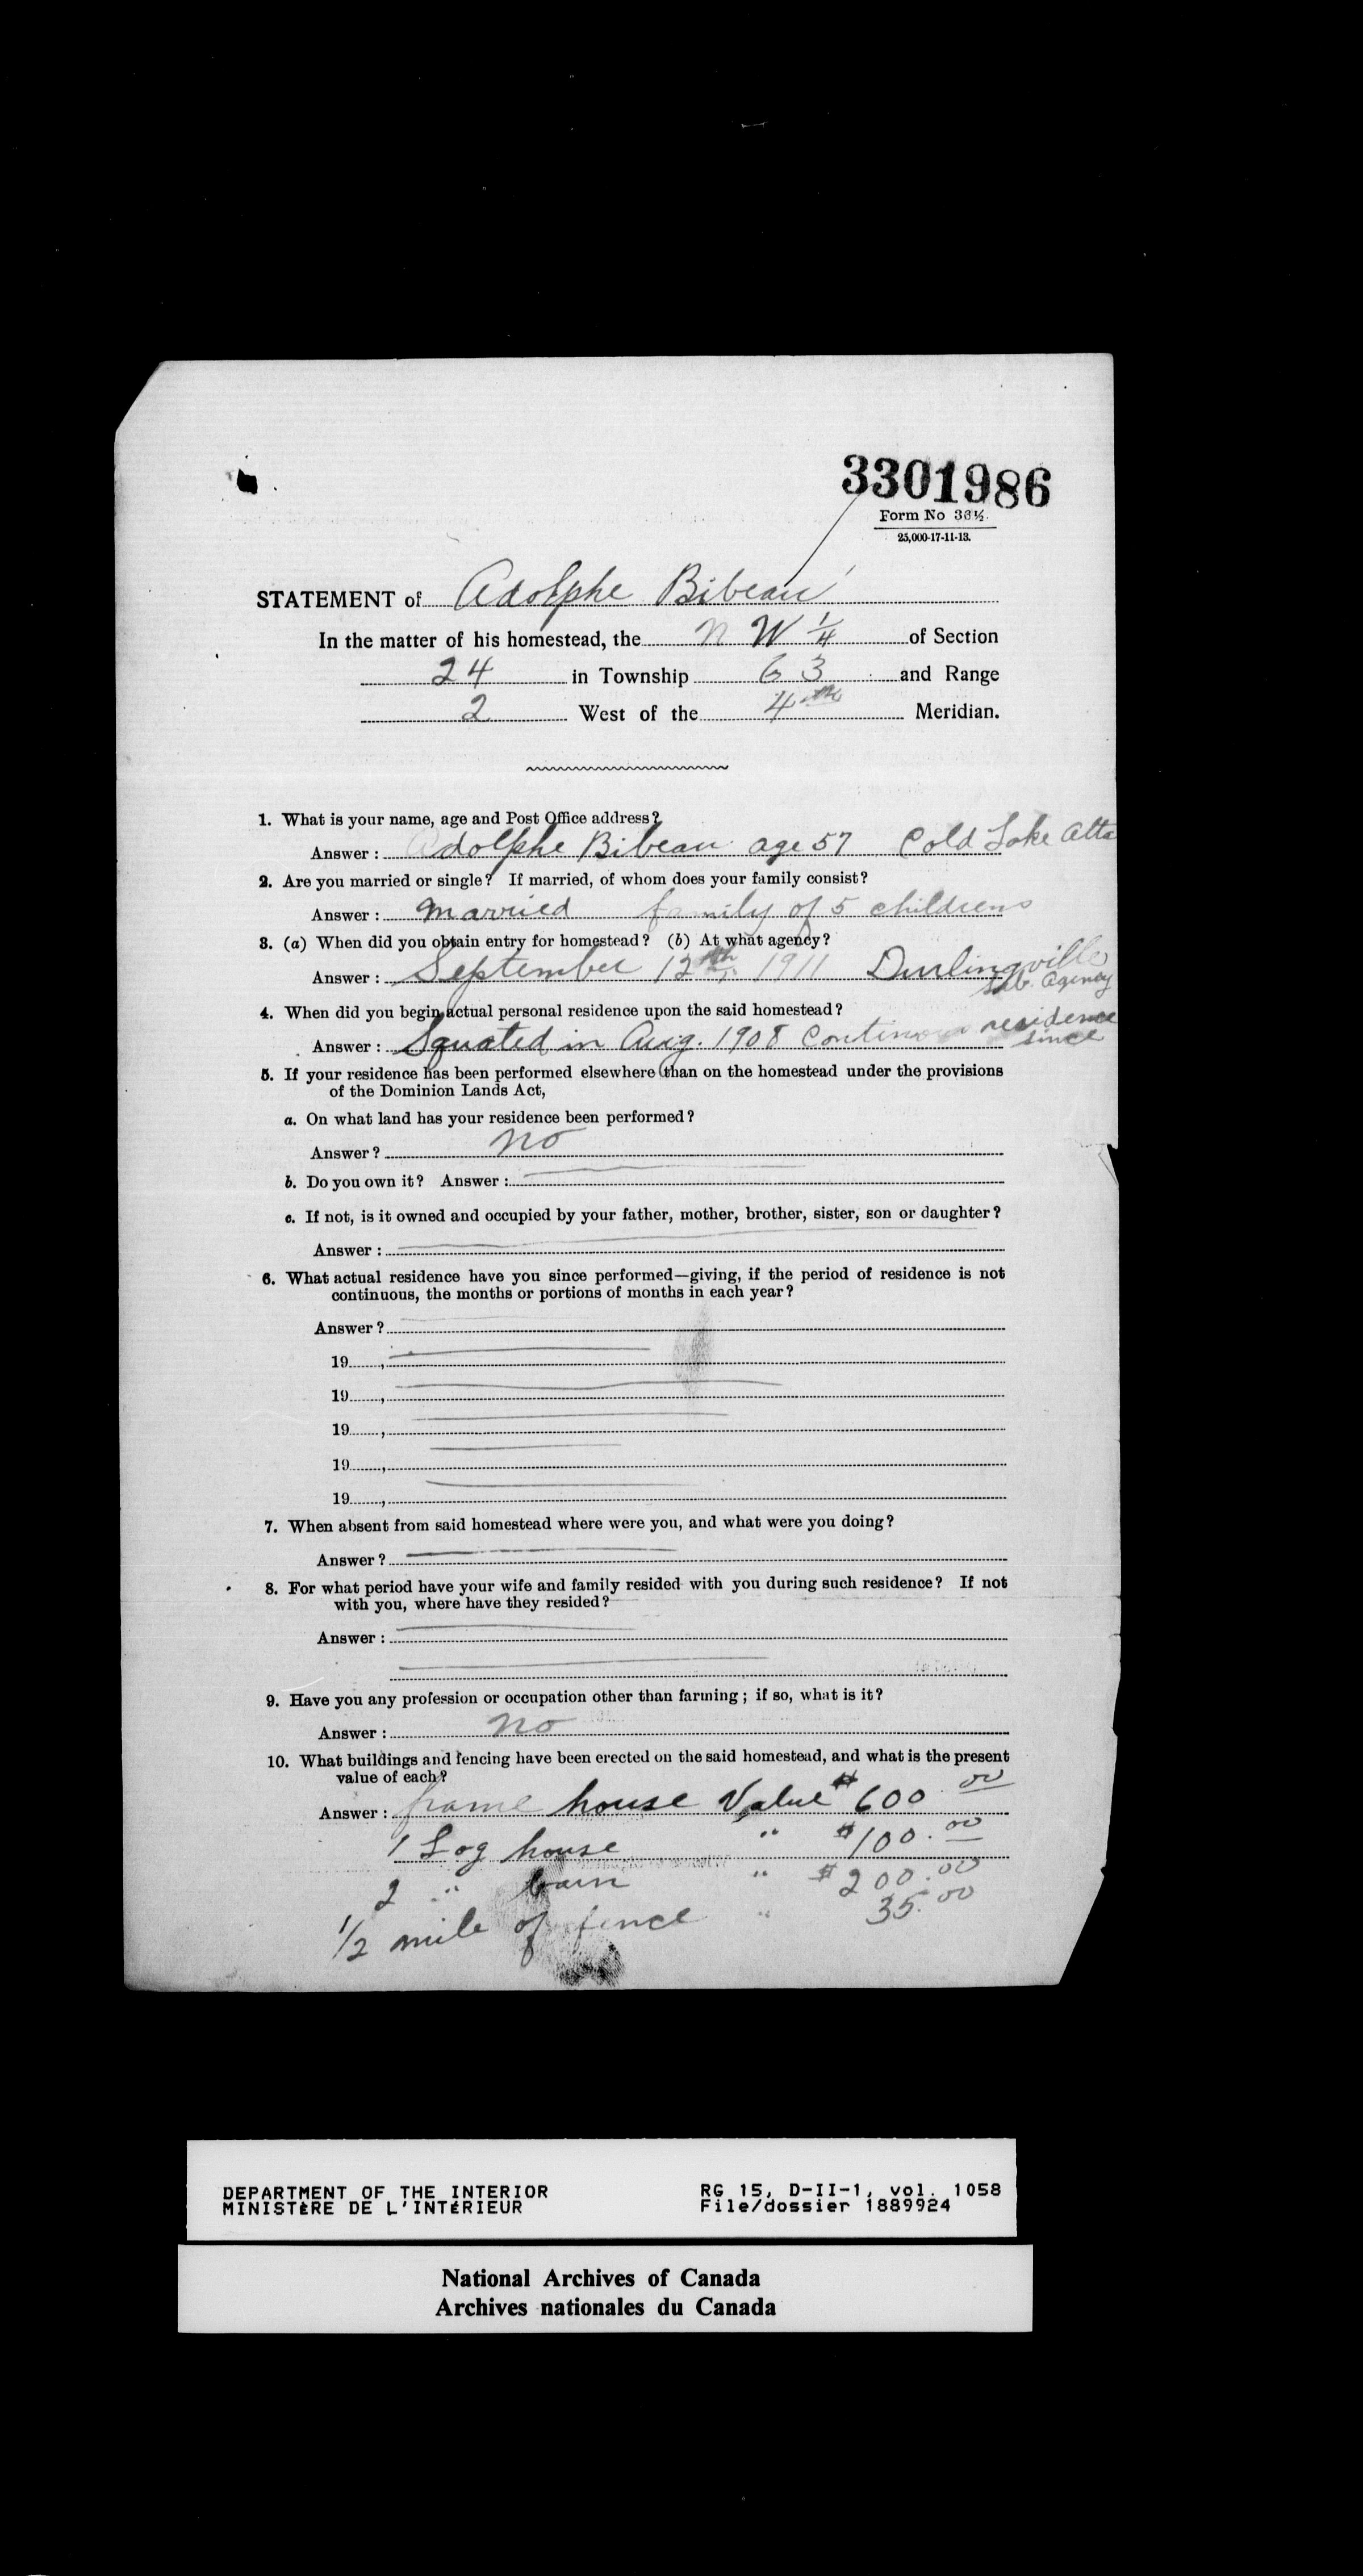 3301986
Form No 36½.
25,000-17-11-13.
STATEMENT of Adolphe Bibeau
In the matter of his homestead, the N W ¼ of Section
24 in Township 63 and Range
2 West of the 4th Meridian.
1. What is your name, age and Post Office address?
Answer: Adolphe Bibeau age 57 Cold Lake Alta
2. Are you married or single? If married, of whom does your family consist?
Answer: married family of 5 childrens
3. (a) When did you obtain entry for homestead? (b) At what agency?
Answer: September 12th 1911 Durlingville
Sub. Agency
4. When did you begin actual personal residence upon the said homestead?
Answer: Squated in Aug. 1908 Continous residence
since
5. If your residence has been performed elsewhere than on the homestead under the provisions
of the Dominion Lands Act,
a. On what land has your residence been performed?
Answer? no
b. Do you own it? Answer:
c. If not, is it owned and occupied by your father, mother, brother, sister, son or daughter?
Answer:
6. What actual residence have you since performed—giving, if the period of residence is not
continuous, the months or portions of months in each year?
Answer?
19 ,
19 ,
19 ,
19 ,
19 ,
7. When absent from said homestead where were you, and what were you doing?
Answer?
8. For what period have your wife and family resided with you during such residence? If not
with you, where have they resided?
Answer:
9. Have you any profession or occupation other than farming; if so, what is it?
Answer: no
10. What buildings and fencing have been erected on the said homestead, and what is the present
value of each?
Answer: frame house Value $600.00
1 Log house " $100.00
2 " barn " $200.00
1/2 mile of fence " 35.00
DEPARTMENT OF THE INTERIOR RG 15, D-II-1, vol. 1058
MINISTÈRE DE L'INTÉRIEUR File/dossier 1889924
National Archives of Canada
Archives nationales du Canada